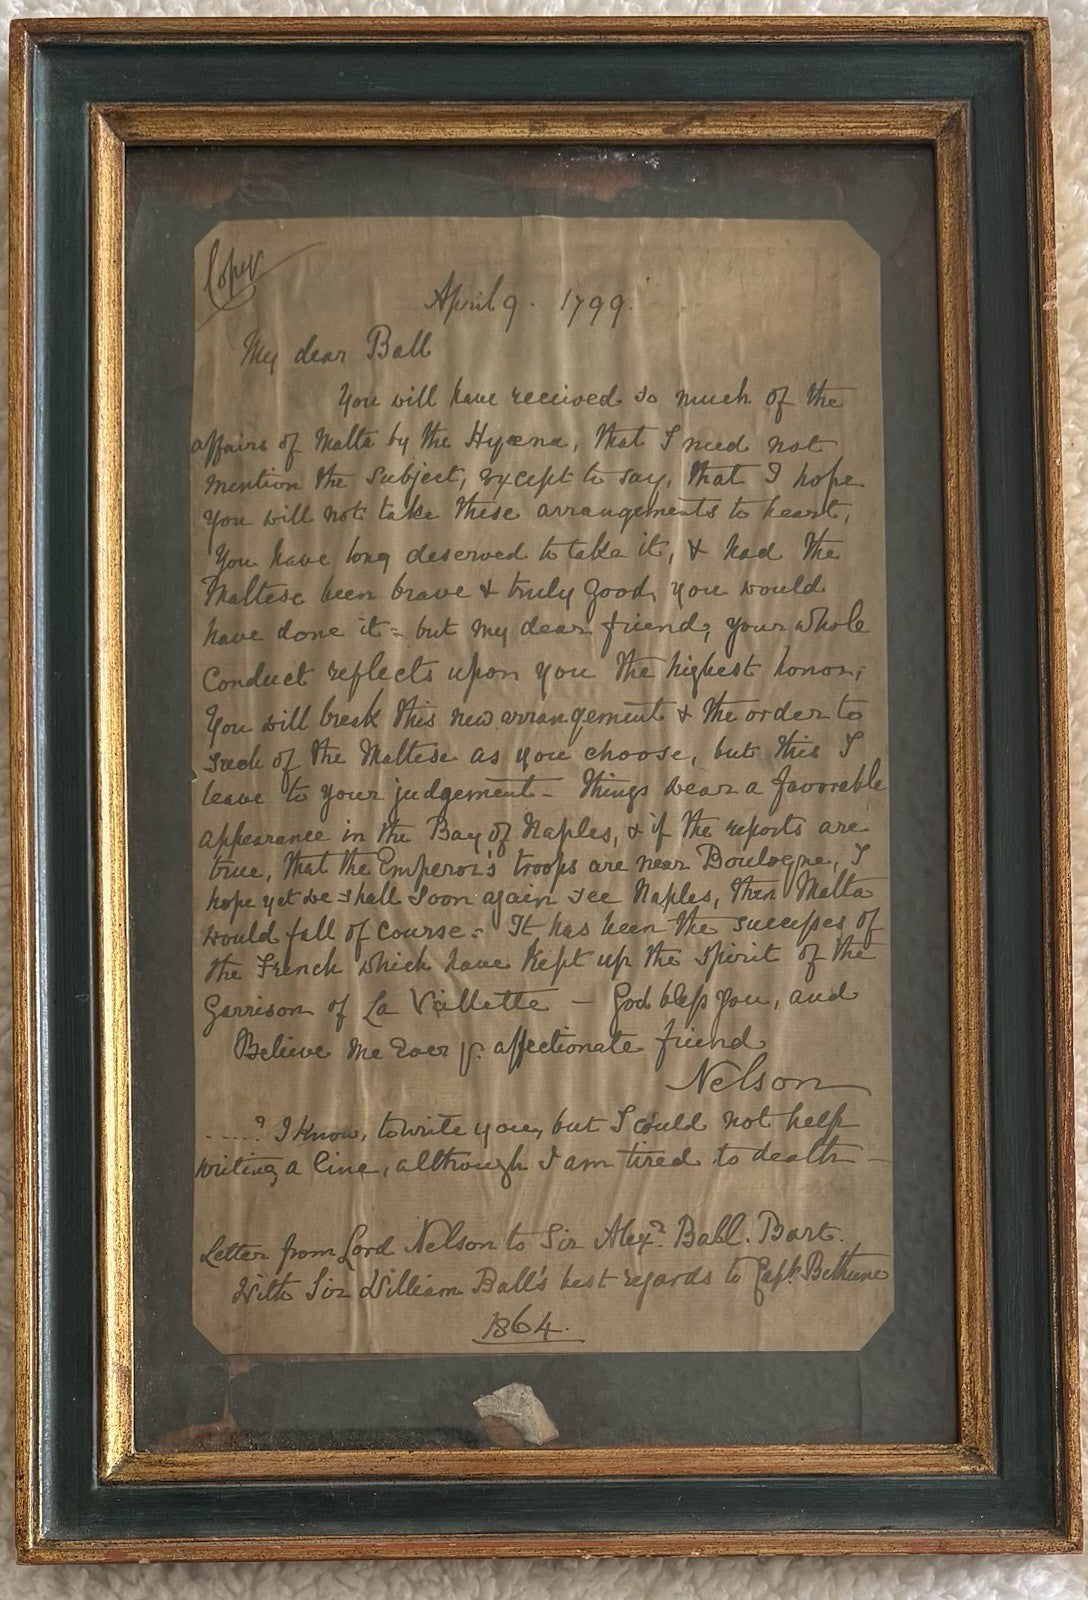 Copy
April 9. 1799.
My dear Ball
You will have received so much of the
affairs of Malta by the Hyæna, that I need not
mention the subject, except to say, that I hope
you will not take these arrangements to heart,
You have long deserved to take it, & had the
Maltese been brave & truly good, you would
have done it = but my dear friend, your whole
Conduct reflects upon you the highest honor;
You will break this new arrangement & the order to
such of the Maltese as you choose, but this I
leave to your judgement - Things wear a favorable
appearance in the Bay of Naples, & if the reports are
true, that the Emperor's troops are near Boulogne, I
hope yet we shall soon again see Naples, then Malta
would fall of course = It has been the successes of
the French which have kept up the spirit of the
Garrison of La Vallette - God bless you, and
Believe me Ever yr. affectionate friend
Nelson
....? I know, to write you, but I could not help
writing a line, although I am tired to death -
Letter from Lord Nelson to Sir Alexr. Ball. Bart.
With Sir William Ball's best regards to Capt. Bethune
1864.